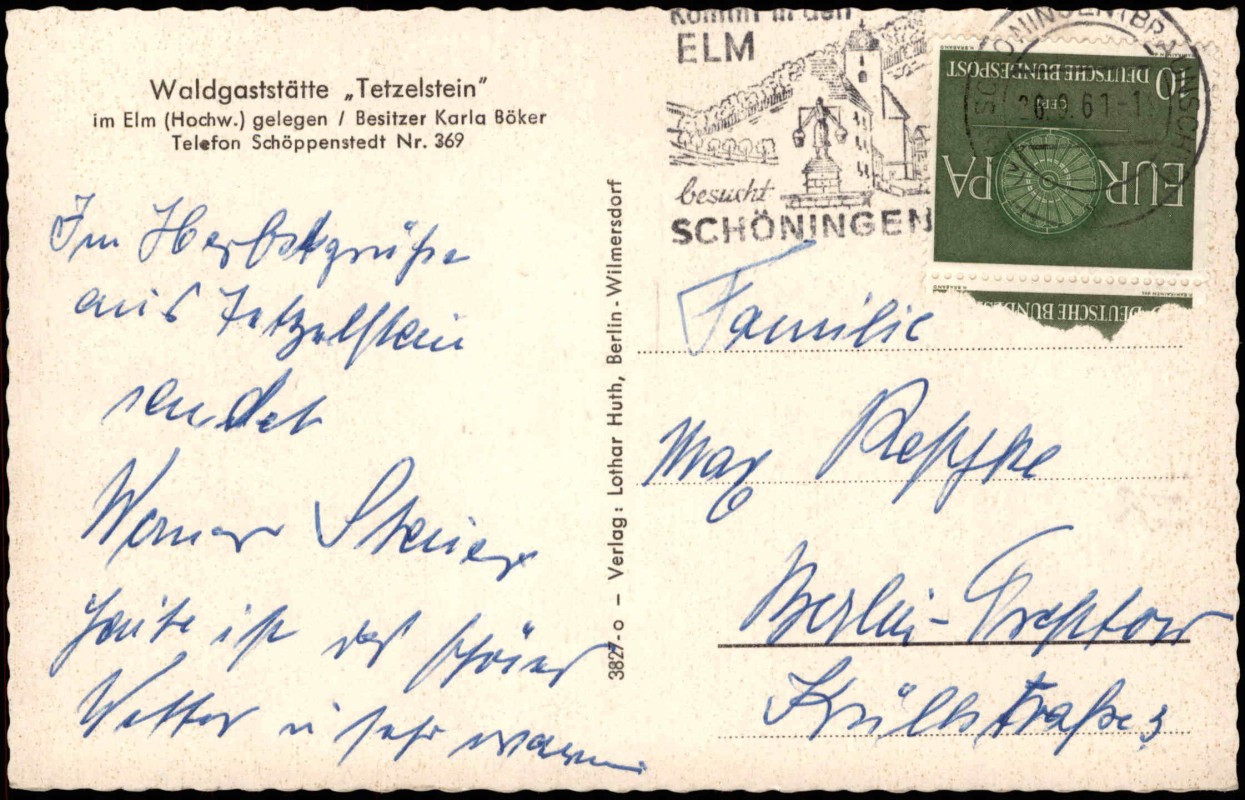 Waldgaststätte „Tetzelstein"
im Elm (Hochw.) gelegen / Besitzer Karla Böker
Telefon Schöppenstedt Nr. 369
Im Herbstgrüße
aus Tetzelstein
sendet
Werner Steiner
Heute ist das schöner
Wetter u sehr warm
3827-o – Verlag: Lothar Huth, Berlin-Wilmersdorf
Kommt in den
ELM
besucht
SCHÖNINGEN
DEUTSCHE BUNDESPOST
10
CEPT
EUROPA
DEUTSCHE BUNDES
Familie
Max
Berlin-Treptow
Krüllsstraße 3